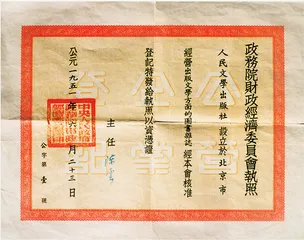 政務院財政經濟委員會執照
人民文學出版社 設立於北京市
經營出版文學方面的圖書雜誌 經本會核准
登記特發給執照以資憑證
主任
公元一九五一年六月二十三日
公字第壹號